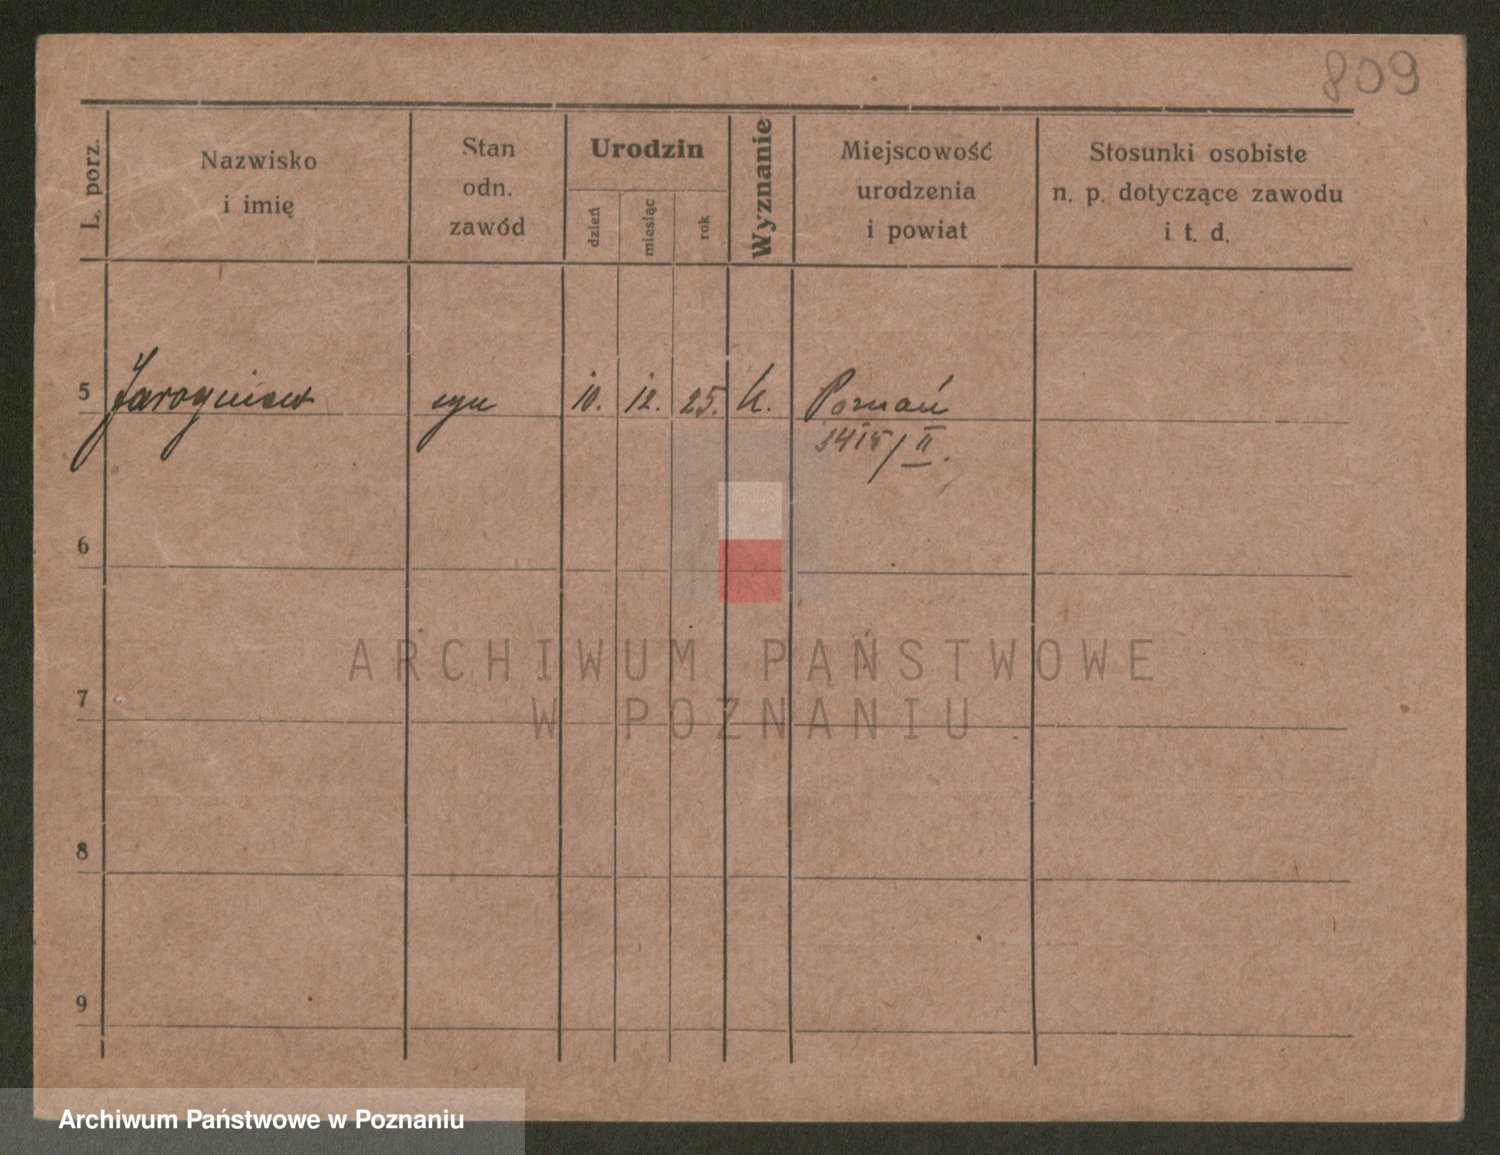 809
L. porz.
Nazwisko
i imię
Stan
odn.
zawód
Urodzin
dzień
miesiąc
rok
Wyznanie
Miejscowość
urodzenia
i powiat
Stosunki osobiste
n. p. dotyczące zawodu
i t. d.
5 Jarogniew syn 10. 12. 25. k. Poznań
6
ARCHIWUM PAŃSTWOWE
7
W POZNANIU
8
9
Archiwum Państwowe w Poznaniu